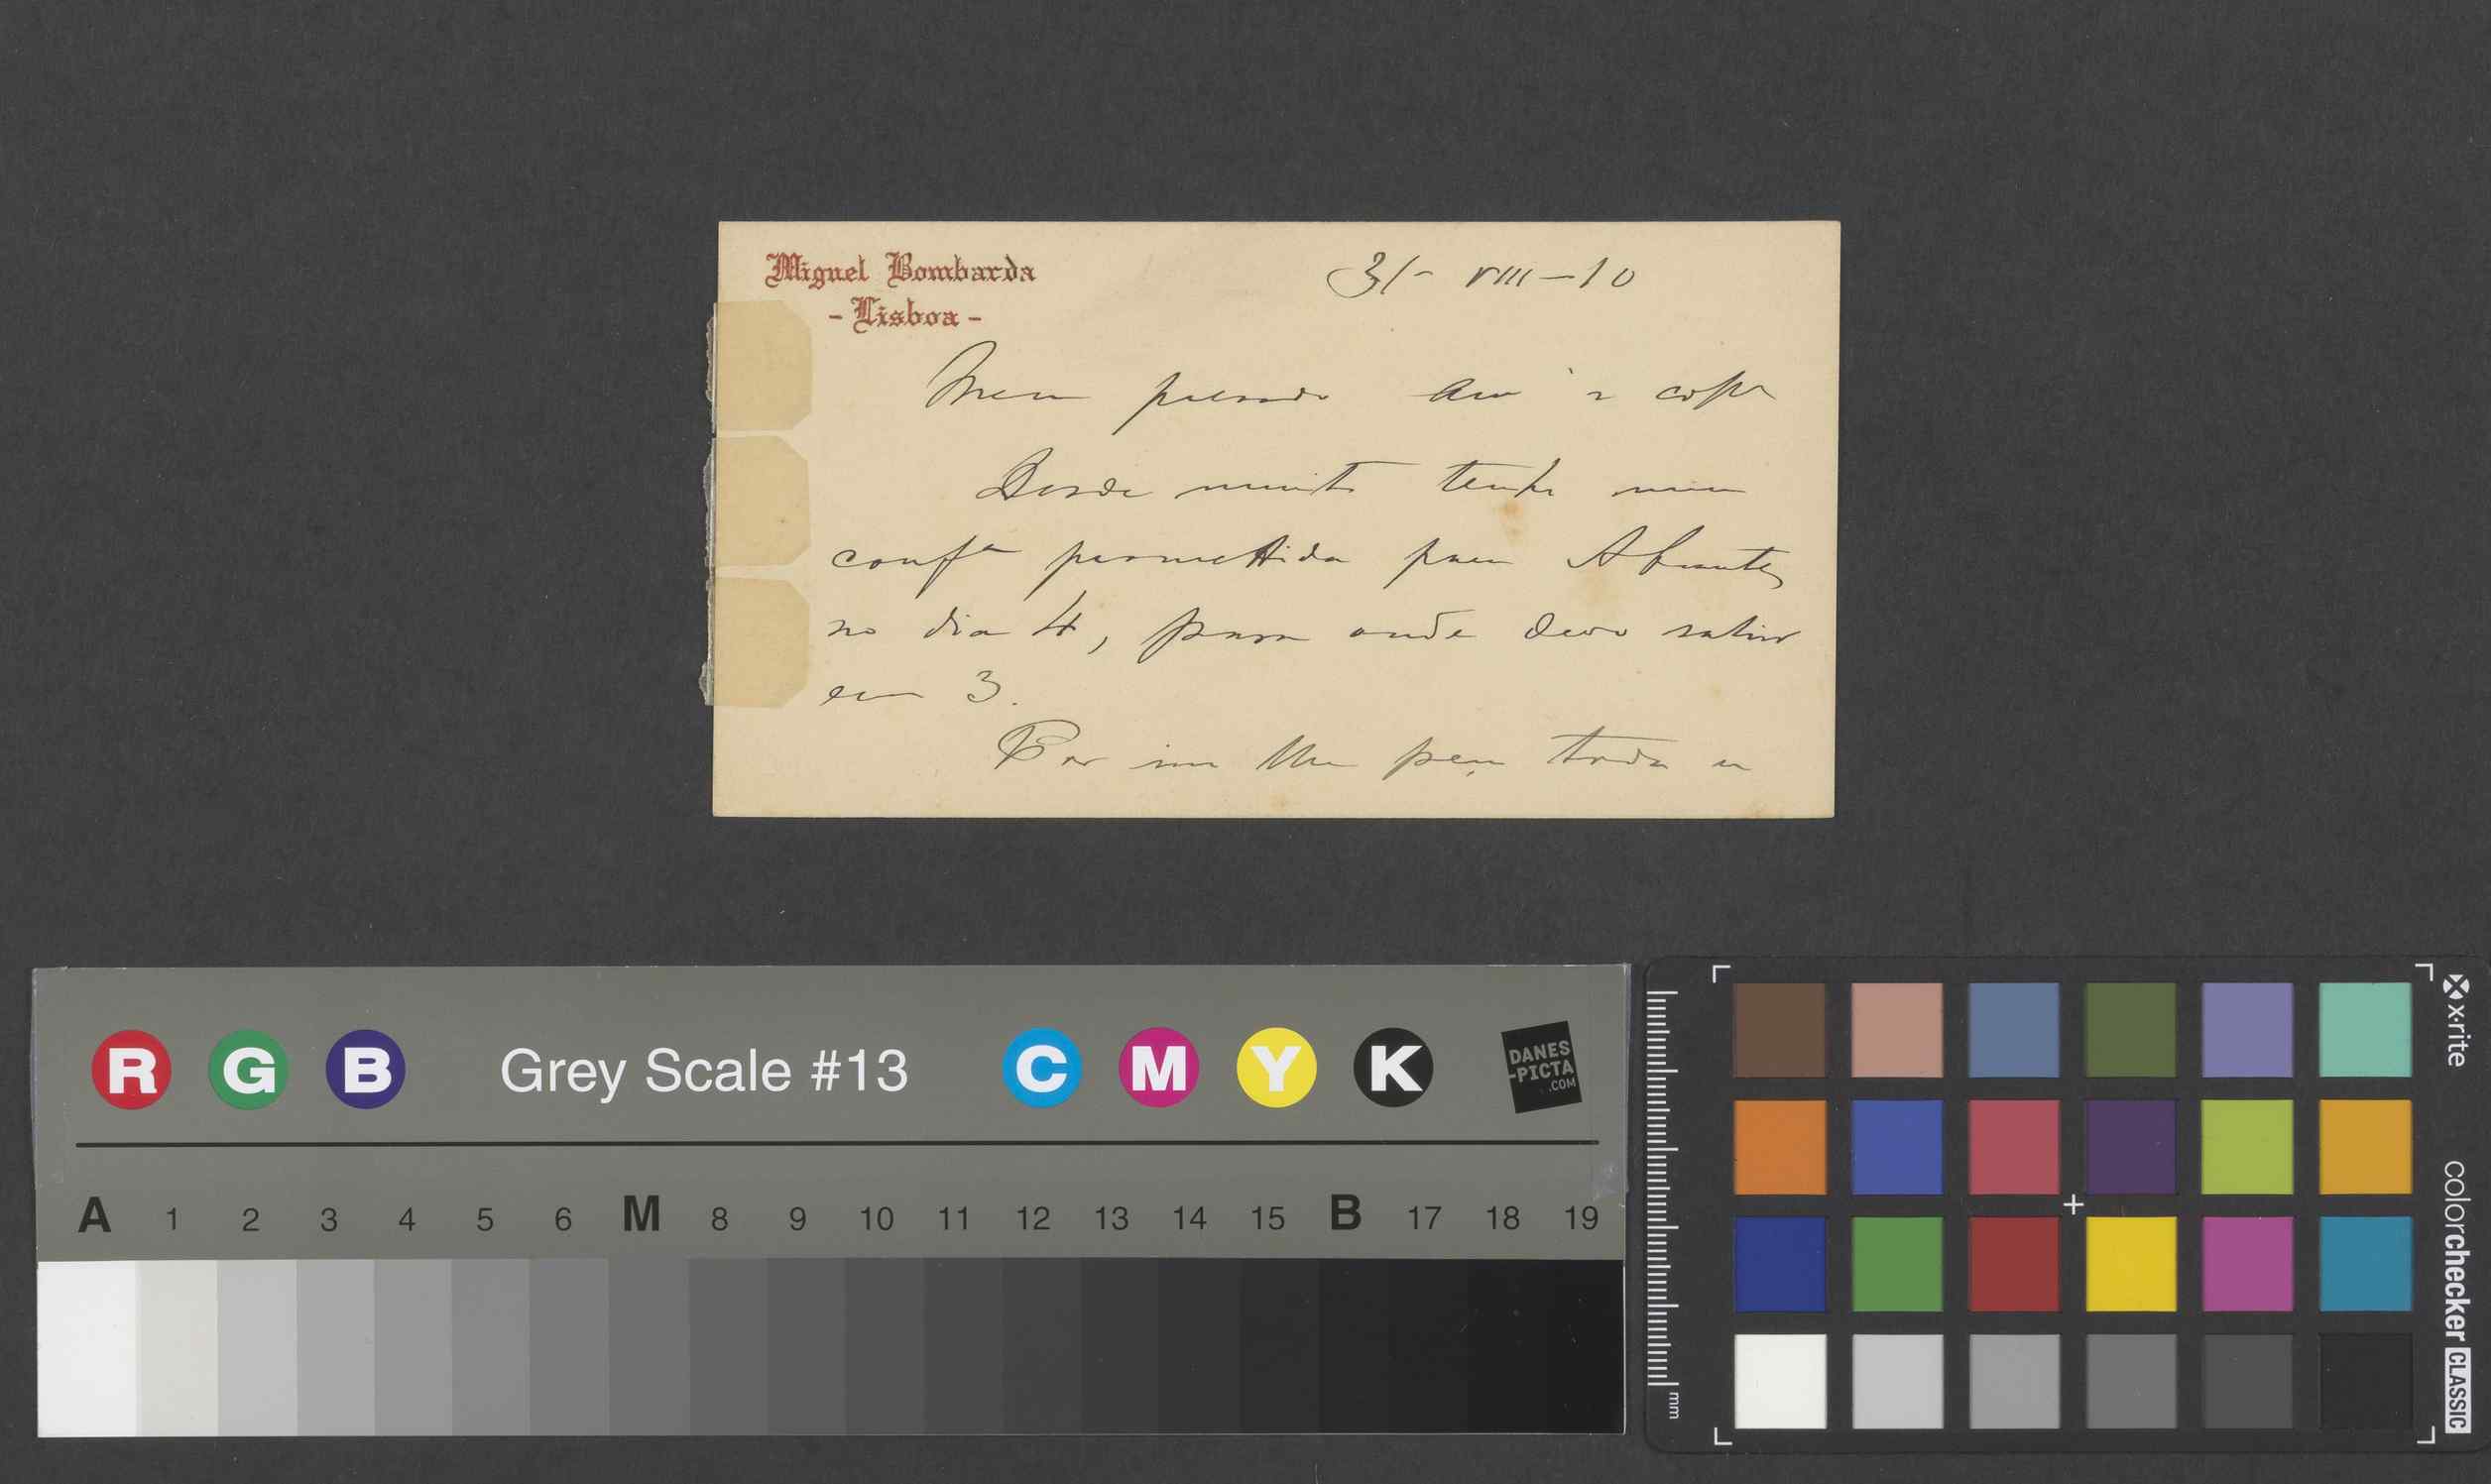 Miguel Bombarda
- Lisboa -
31- VIII - 10
Meu presado Am.º e
Desde muito tenho uma
confª promettida para Abrantes
no dia 4, para onde devo sahir
em 3.
Por isso lhe peço toda a
R G B Grey Scale #13 C M Y K DANES
-PICTA
.COM
A 1 2 3 4 5 6 M 8 9 10 11 12 13 14 15 B 17 18 19
mm
x-rite
colorchecker CLASSIC